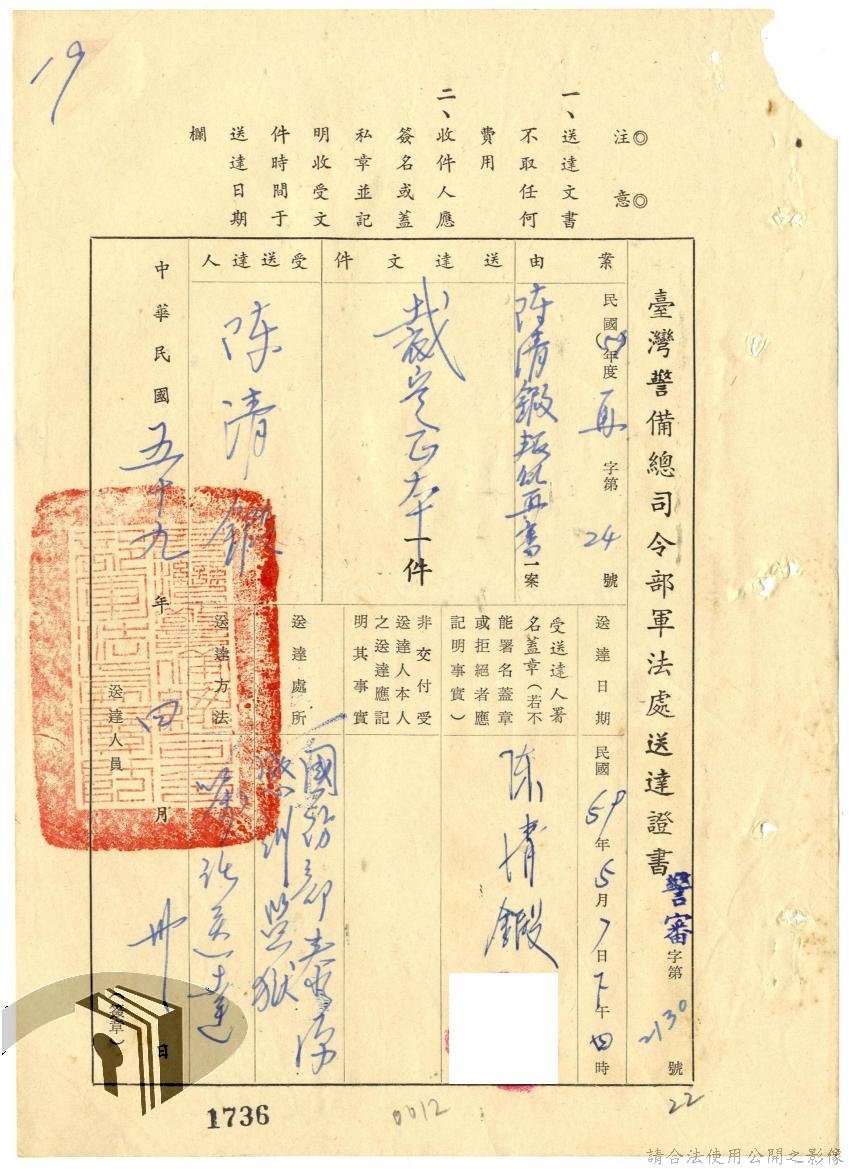 19
◎注意◎
一、送達文書
不取任何
費用
二、收件人應
簽名或蓋
私章並記
明收受文
件時間于
送達日期
欄
臺灣警備總司令部軍法處送達證書
警審字第2130號
案由
民國(59)年度再字第24號
陳清鍛叛亂再審一案
送達文件
裁定正本一件
受送達人
陳清鍛
送達日期
民國59年5月7日下午四時
受送達人署
名蓋章(若不
能署名蓋章
或拒絕者應
記明事實)
陳清鍛
非交付受
送達人本人
之送達應記
明其事實
送達處所
國防部泰源
感訓監獄
送達方法
囑託送達
中華民國五十九年四月卅日
送達人員
(簽章)
1736
0012
22
請合法使用公開之影像